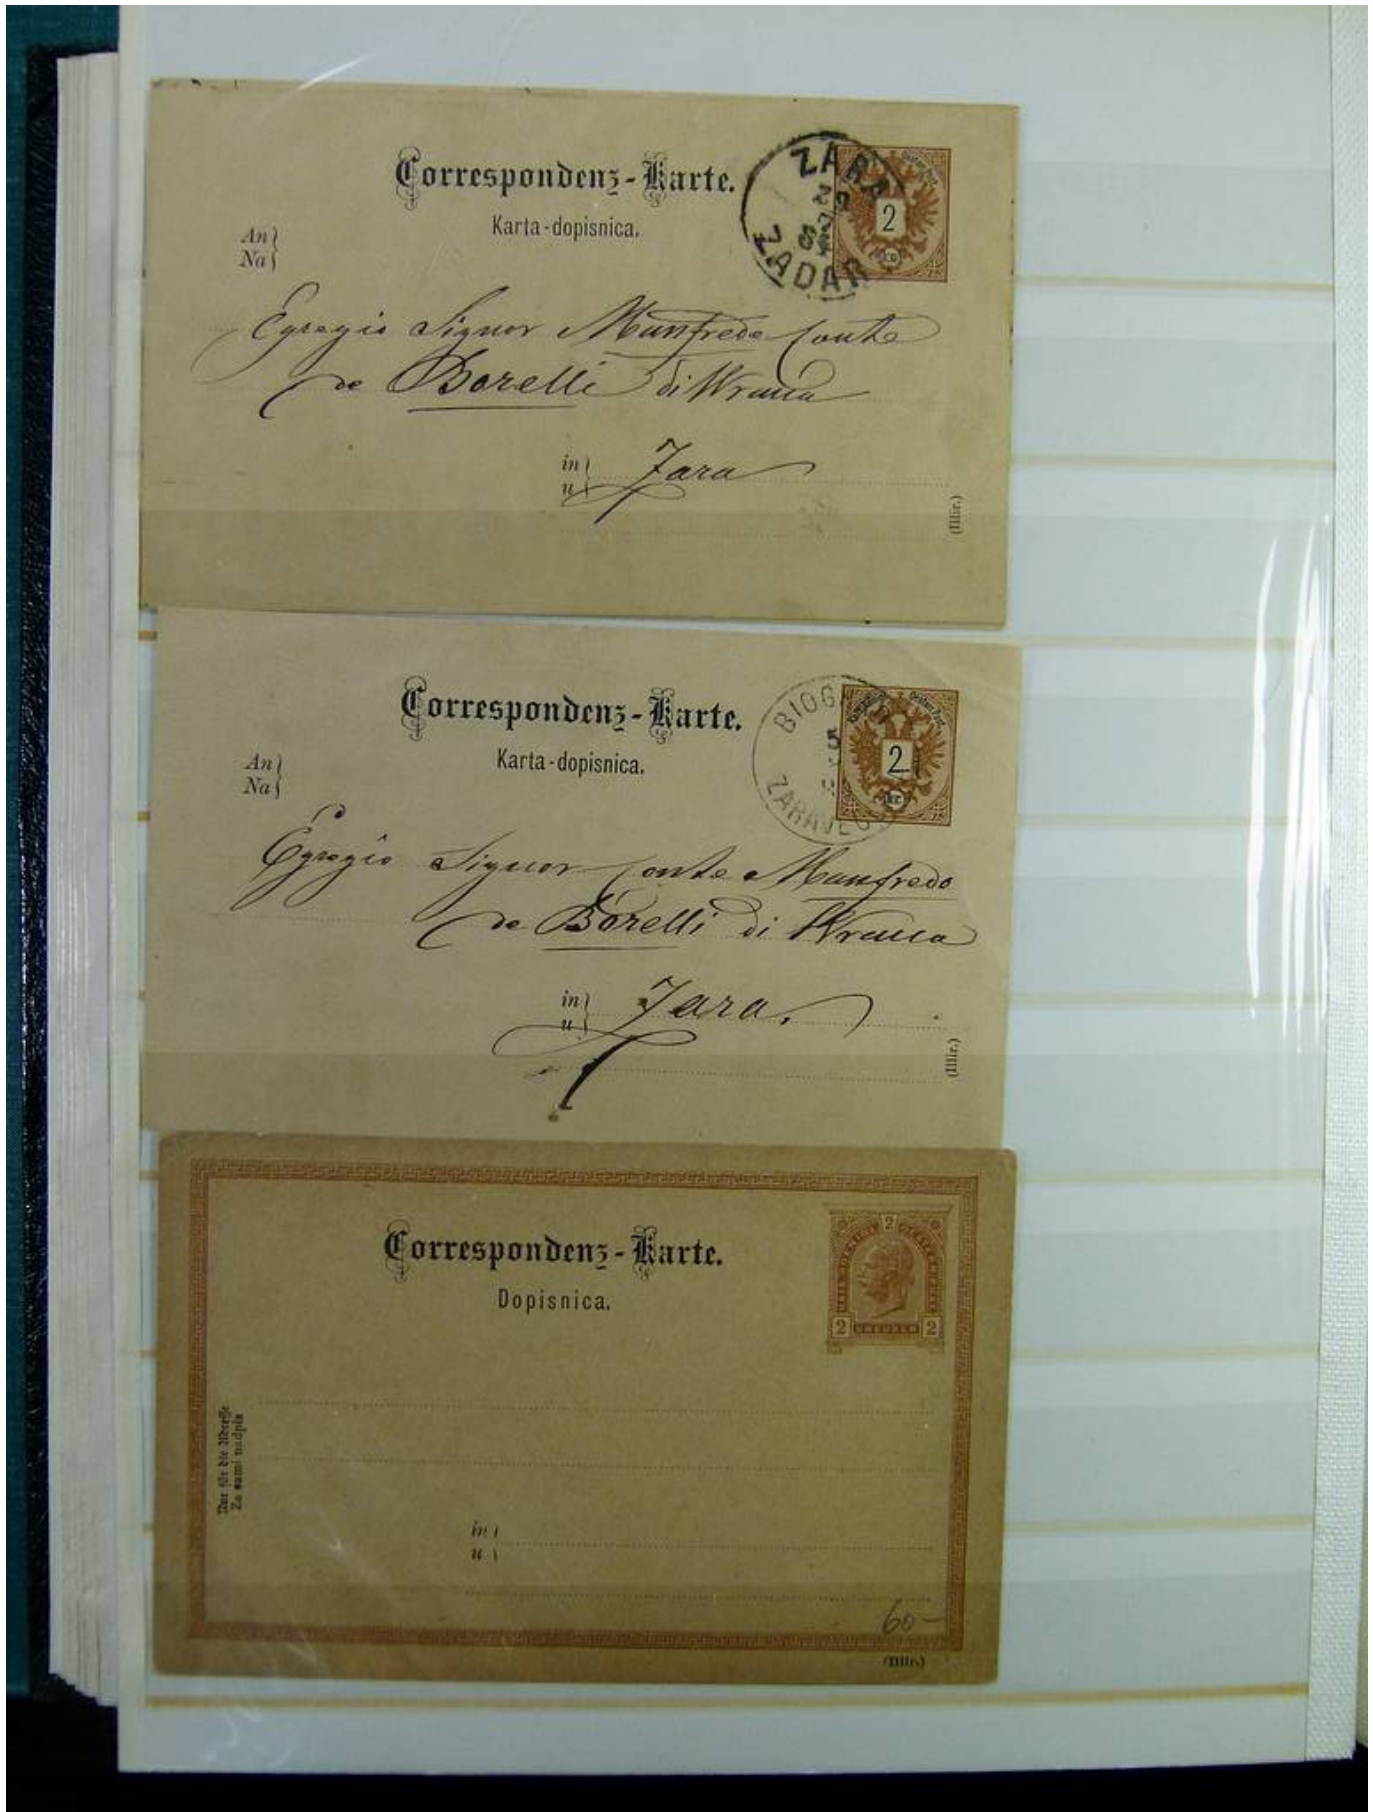 Correspondenz-Karte.
Karta-dopisnica.
ZARA
ZADAR
2
An
Na
Egregio Signor Manfredo Conte
de Borelli di Wrana
in Zara
u
(Illir.)
Correspondenz-Karte.
Karta-dopisnica.
2
An
Na
Egregio Signor Conte Manfredo
de Borelli di Wrana
in Zara.
u
(Illir.)
Correspondenz-Karte.
Dopisnica.
2
2 KREUZER 2
Nur für die Adresse
Za sami nadpis
in
u
60-
(Illir.)